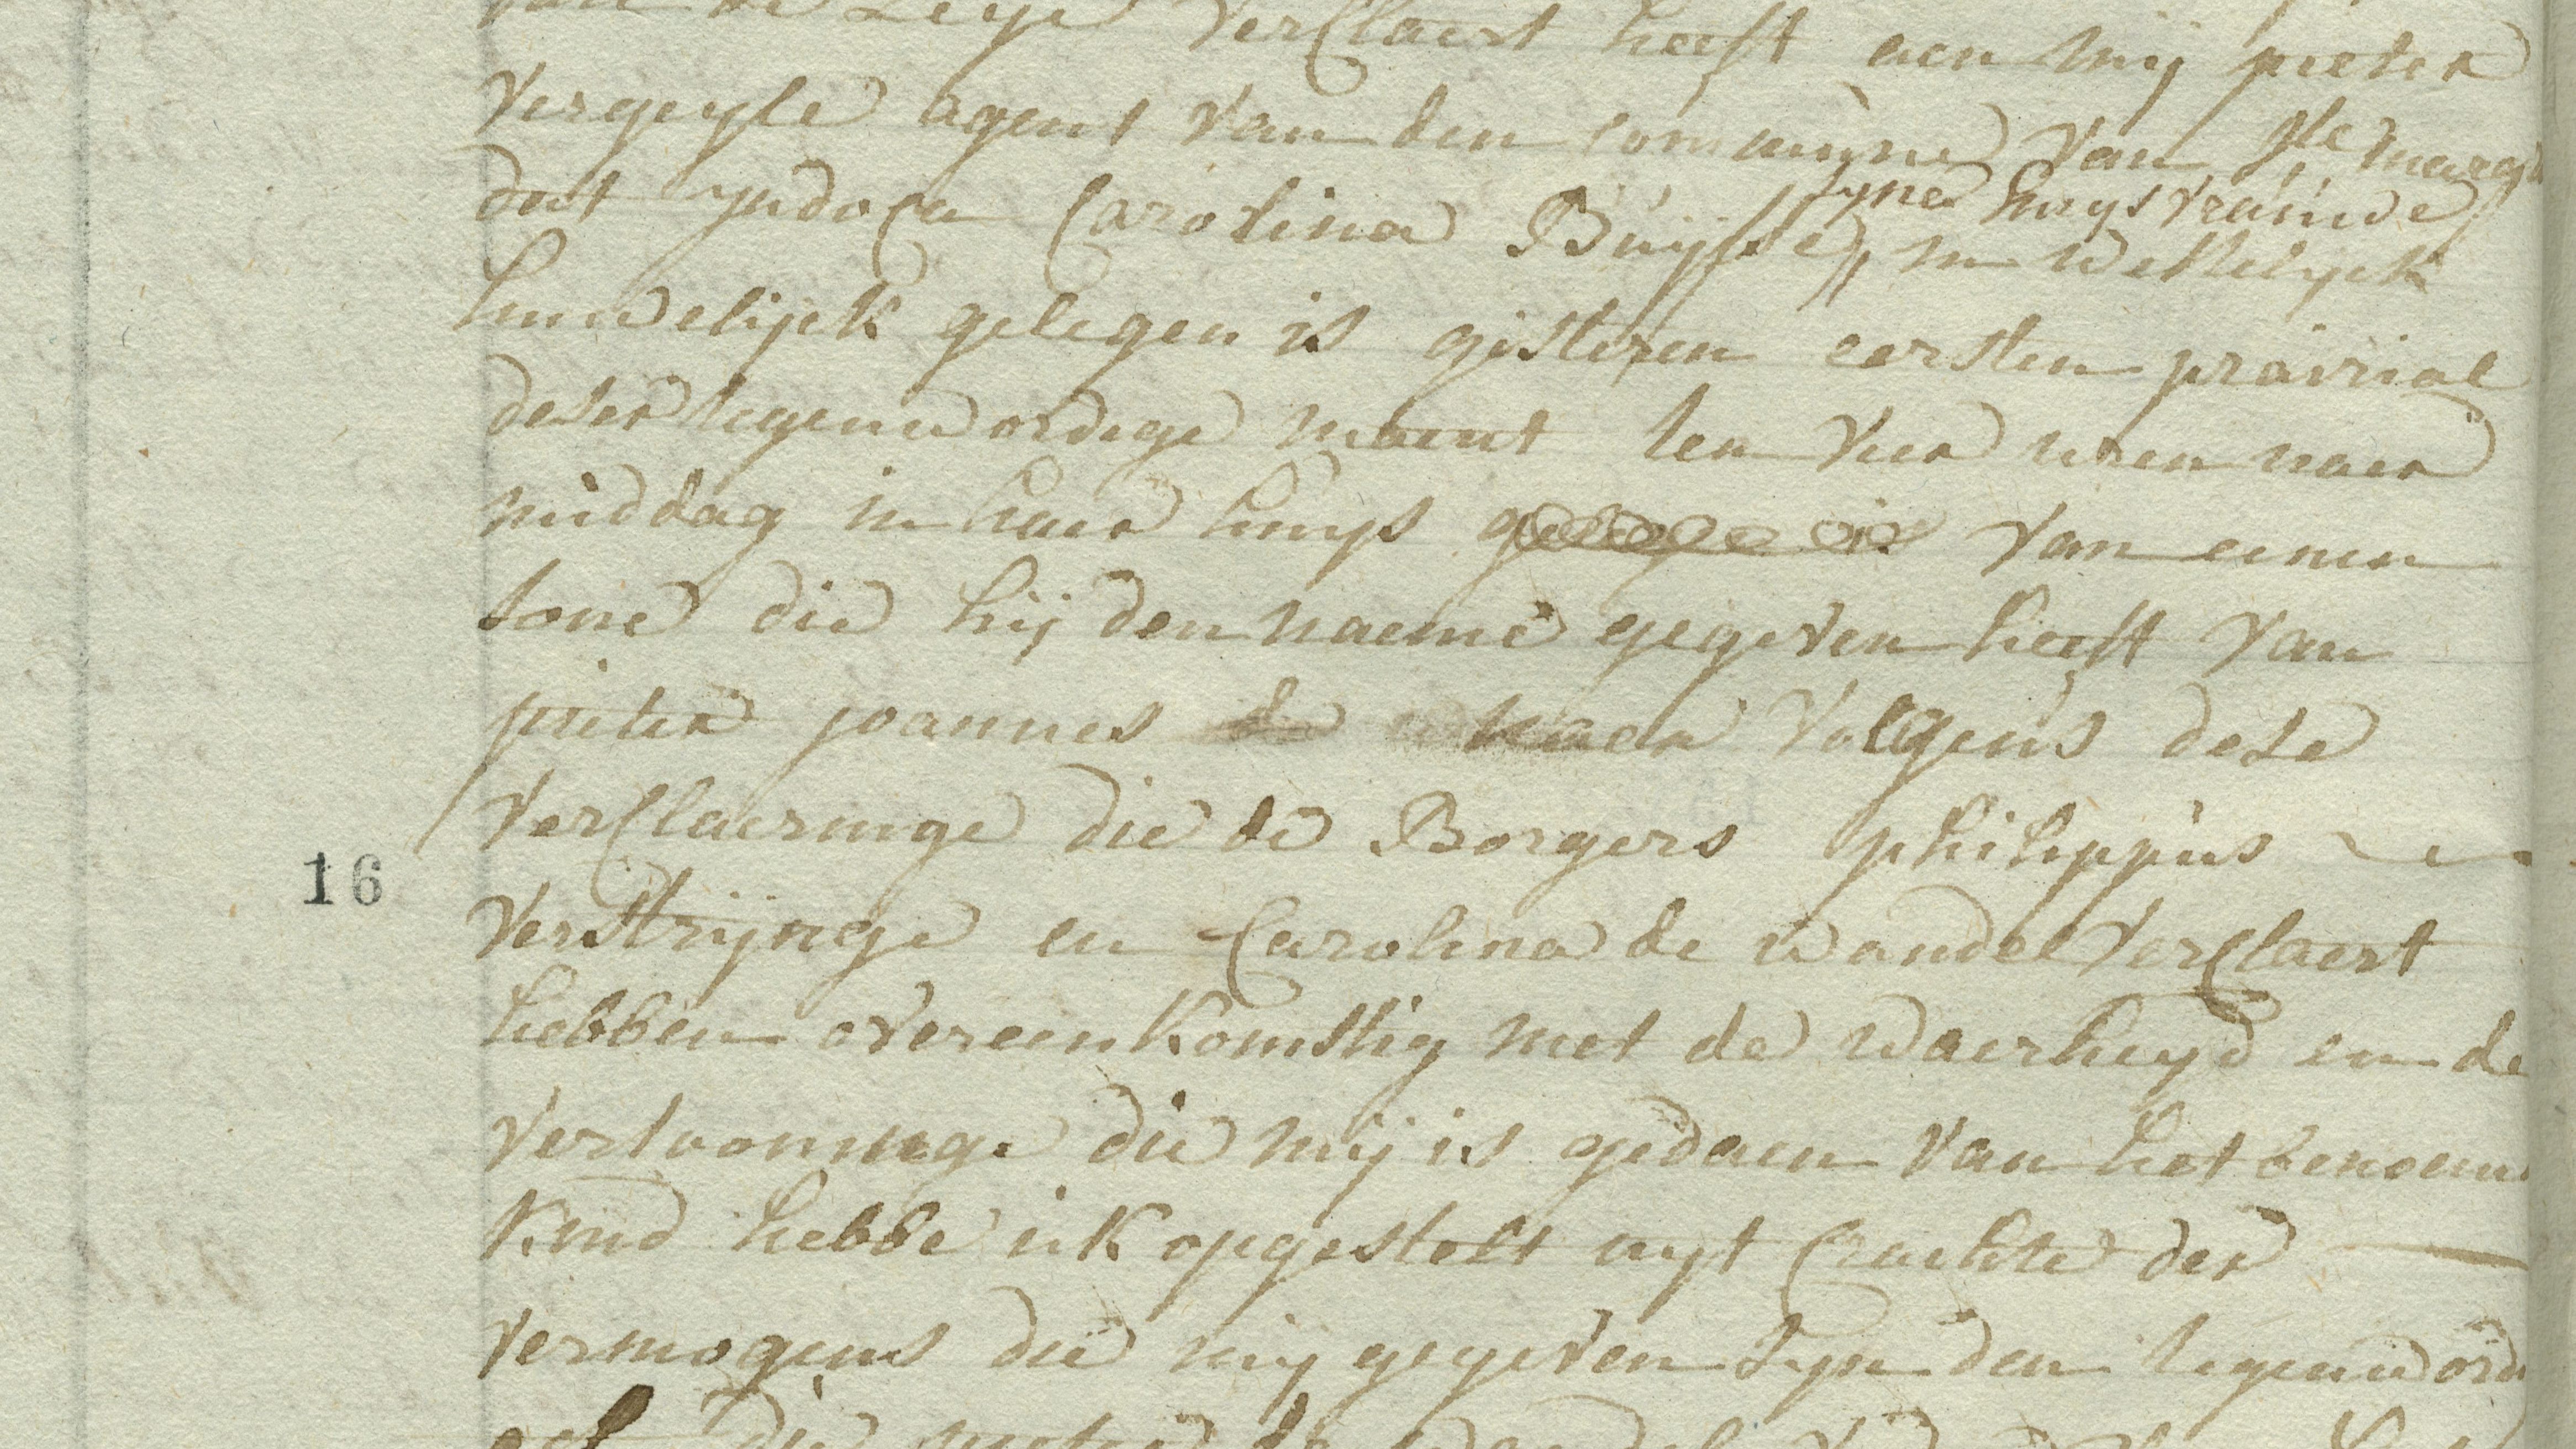 van de Leye verclaert heeft aen mij pieter
Vergeyle agent van den comuúne van Ste marg
syne huysvrauwe
dat Judoca Carolina Buÿsse, in wettelyck
huwelijck gelegen is gisteren eersten prairial
deser tegenwordige maent ten vier uren naer
middag in haer huys van eenen
sone die hij den naeme gegeven heeft van
pieter joannes naer volgens dese
verclaeringe die de Borgers philippus
16
Verstrijnge en Carolina de wandel verclaert
hebben overeenkomstig met de waerheyd en de
vertooninge die mij is gedaen van het benoem
kind hebbe ik opgestelt uyt crachte der
vermogens die mij gegeven syn den tegenword
act die